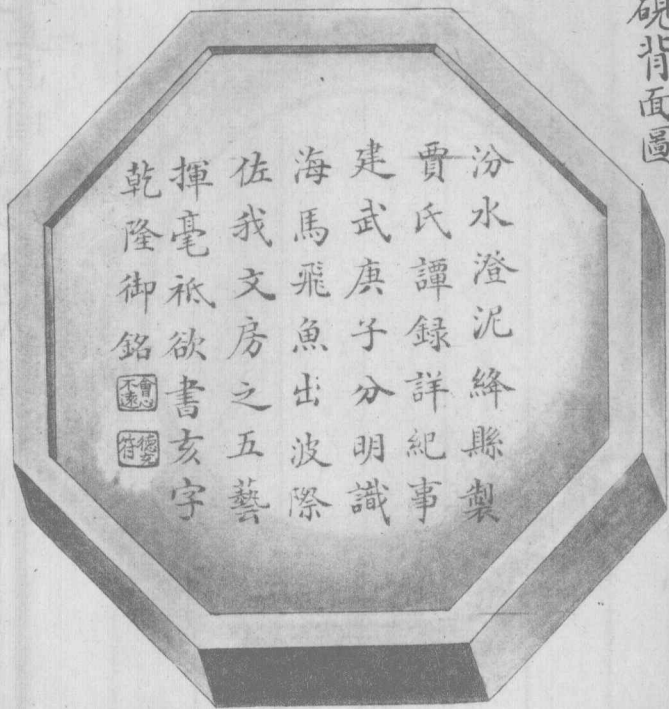 硯背面圖
汾水澄泥絳縣製
賈氏譚録詳紀事
建武庚子分明識
海馬飛魚出波際
佐我文房之五藝
揮毫祗欲書亥字
乾隆御銘
會心不遠
德充符